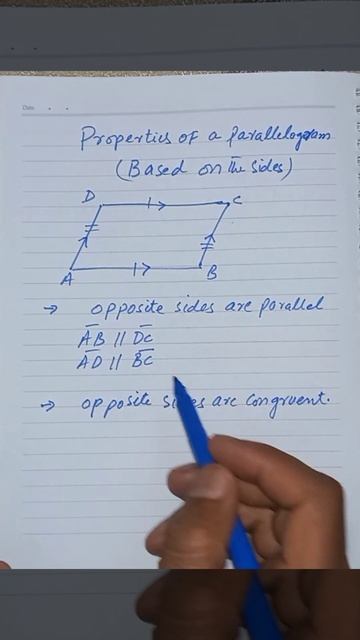 Date
Properties of a parallelogram
(Based on the sides)
D
C
A
B
→ opposite sides are parallel
A̅B̅ // D̅C̅
A̅D̅ // B̅C̅
→ opposite sides are congruent.